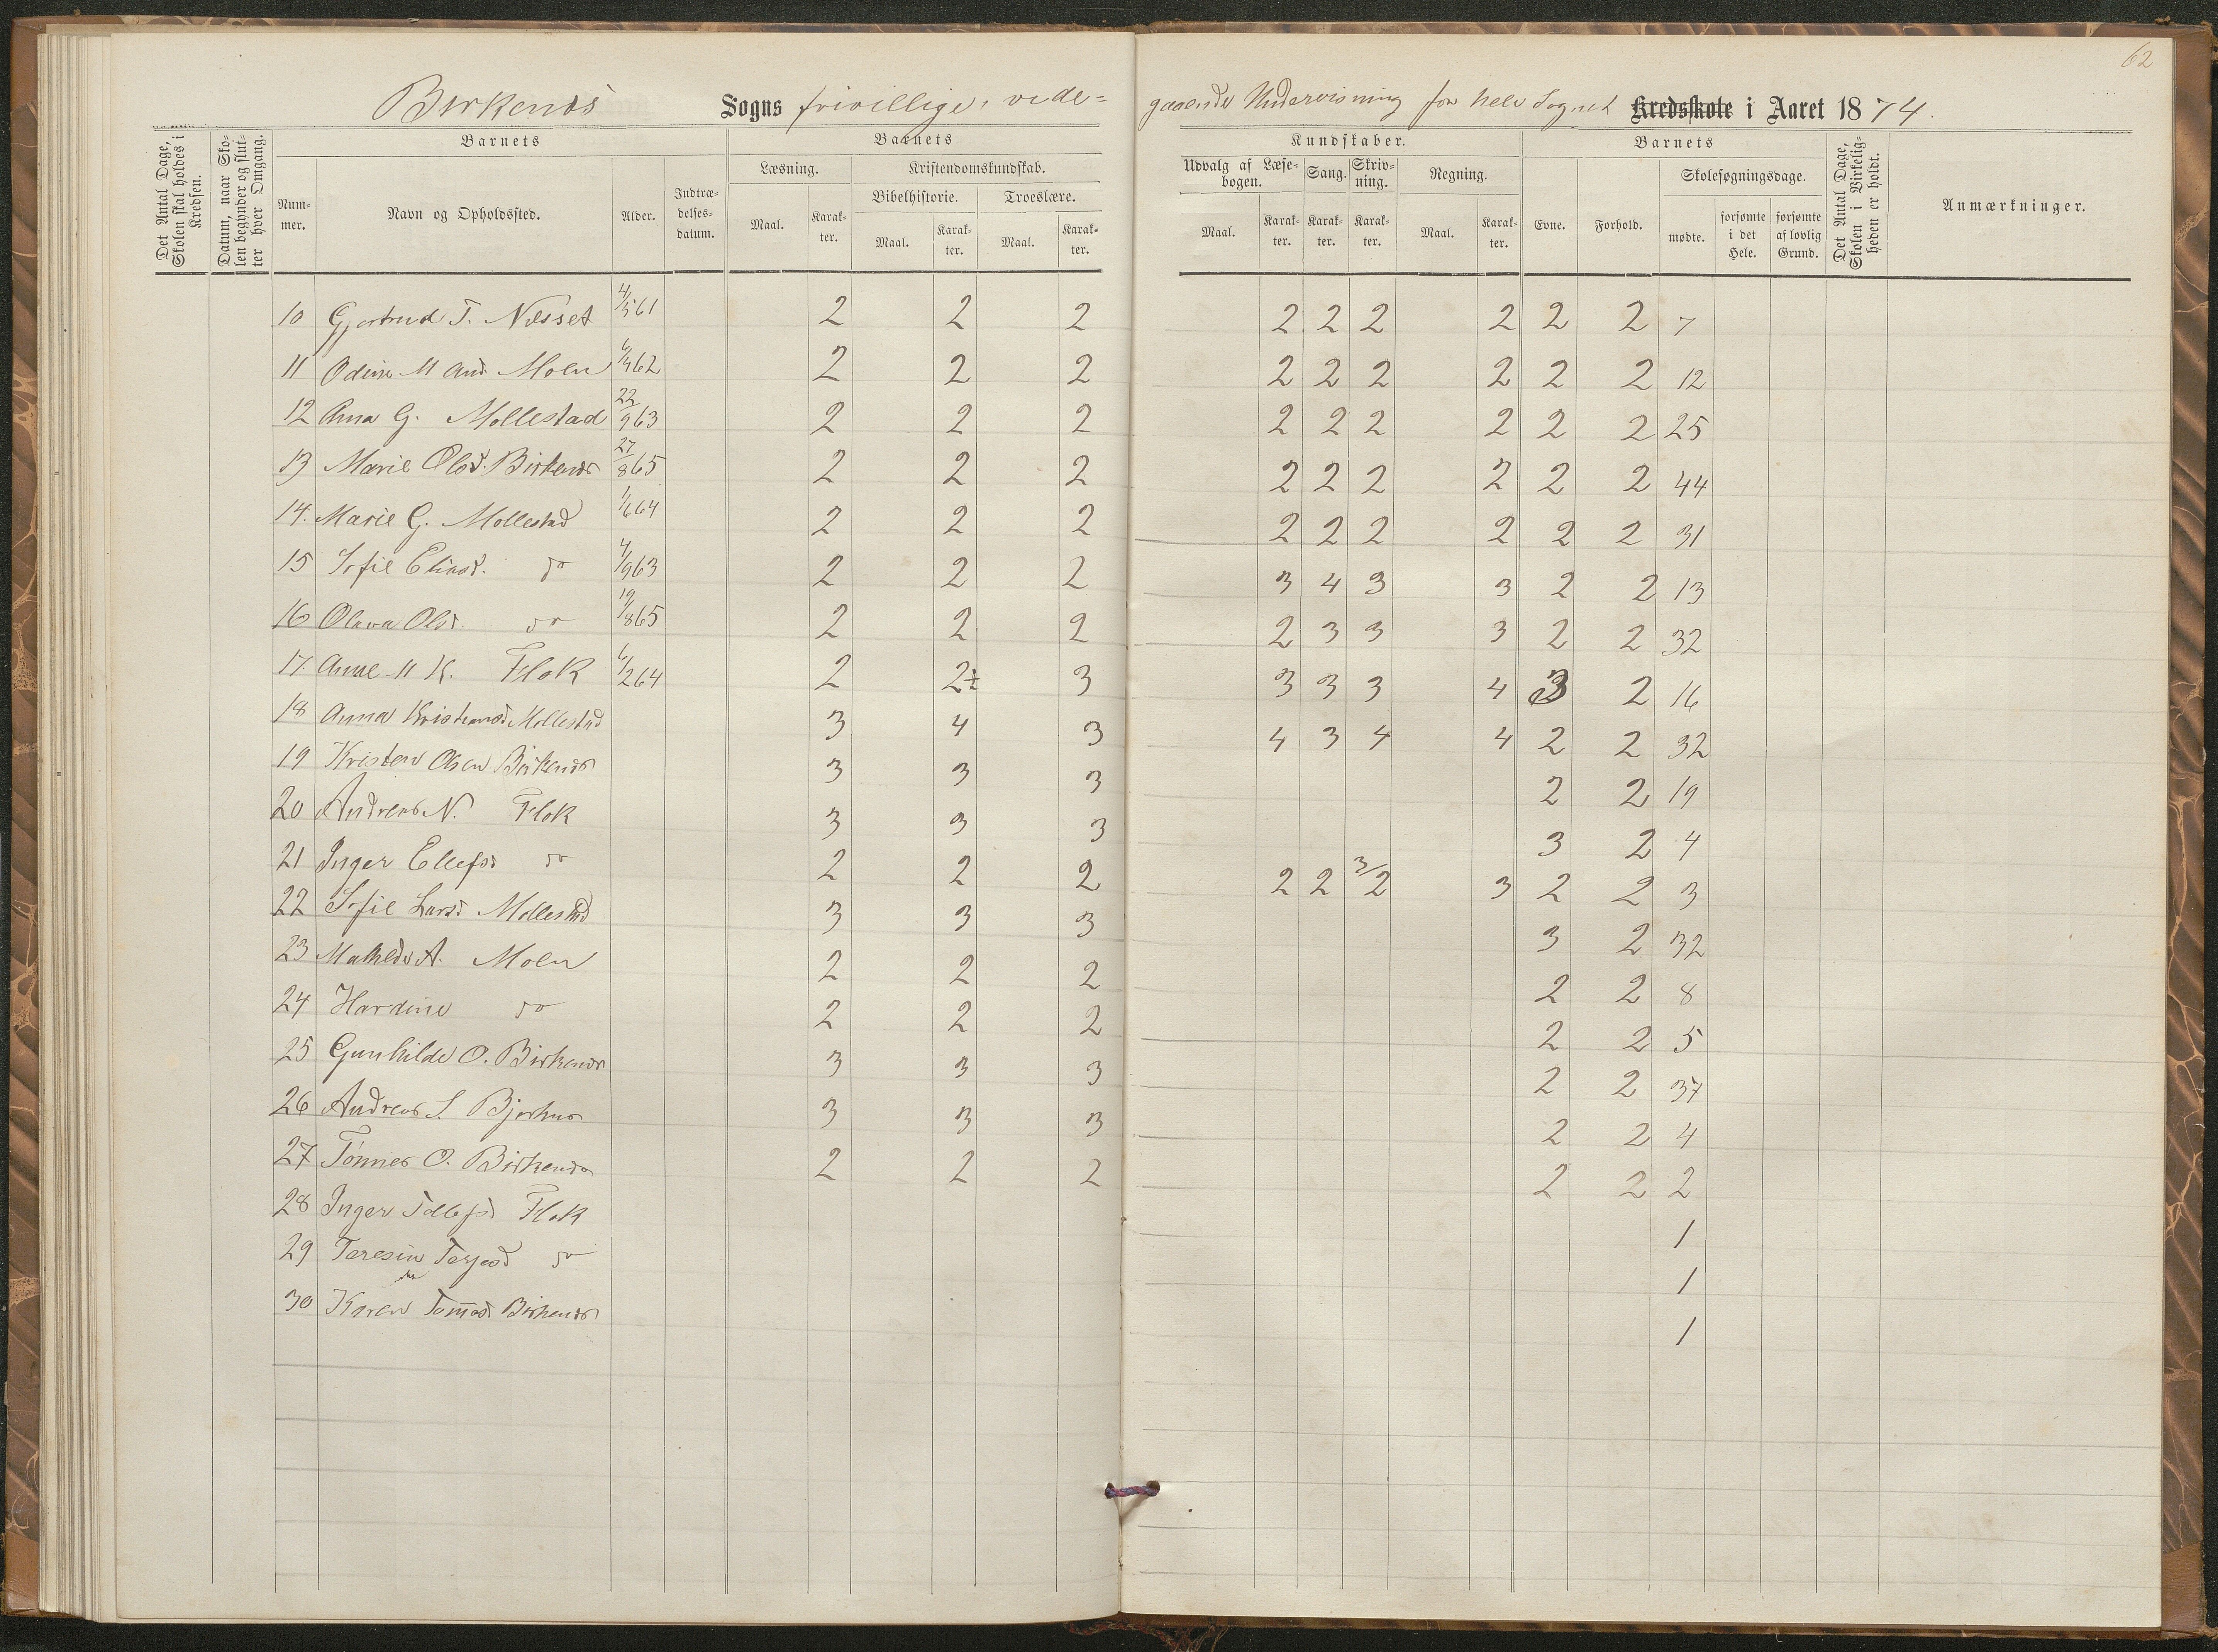 62
Birkenes Sogns frivillige, vide= gaaende Undervisning for hele Sognet Kredsskole i Aaret 1874.
Det Antal Dage, Skolen skal holdes i Kredsen.
Datum, naar Skolen begynder og slutter hver Omgang.
Barnets
Nummer.
Navn og Opholdssted.
Alder.
Indtrædelsesdatum.
Barnets
Læsning.
Kristendomskundskab.
Bibelhistorie.
Troeslære.
Maal. Karakter. Maal. Karakter. Maal. Karakter.
Kundskaber.
Udvalg af Læsebogen.
Sang.
Skrivning.
Regning.
Maal. Karakter. Karakter. Karakter. Maal. Karakter.
Barnets
Evne.
Forhold.
Skolesøgningsdage.
mødte.
forsømte i det Hele.
forsømte af lovlig Grund.
Det Antal Dage, Skolen i Virkeligheden er holdt.
Anmærkninger.
10 Gjertrud T. Nesset 4/5 61 2 2 2 2 2 2 2 2 2 7
11 Odine M And. Moen 6/4 62 2 2 2 2 2 2 2 2 2 12
12 Anna G. Mollestad 22/9 63 2 2 2 2 2 2 2 2 2 25
13 Marie Olsd. Birkenes 27/8 65 2 2 2 2 2 2 2 2 2 44
14. Marie G. Mollestad 1/6 64 2 2 2 2 2 2 2 2 2 31
15 Sofie Eliasd. do 4/9 63 2 2 2 3 4 3 3 2 2 13
16 Olava Olsd. do 19/8 65 2 2 2 2 3 3 3 2 2 32
17. Anne M K. Flak 6/2 64 2 2½ 3 3 3 3 4 3 2 16
18 Anna Kristiansd Mollestad 3 4 3 4 3 4 4 2 2 32
19 Kristen Olsen Birkenes 3 3 3 2 2 19
20 Andreas N. Flak 3 3 3 3 2 4
21 Inger Ellefsd do 2 2 2 2 2 3/2 3 2 2 3
22 Sofie Larsd Mollestad 3 3 3 3 2 32
23 Mathilde A. Moen 2 2 2 2 2 8
24 Hardine do 2 2 2 2 2 5
25 Gunhilde O. Birkenes 3 3 3 2 2 37
26 Andreas S. Bjorhus 3 3 3 2 2 4
27 Tønnes O. Birkenes 2 2 2 2 2 2
28 Inger Tellefsd Flak 1
29 Teresine Terjesd do 1
30 Karen Tomasd Birkenes 1